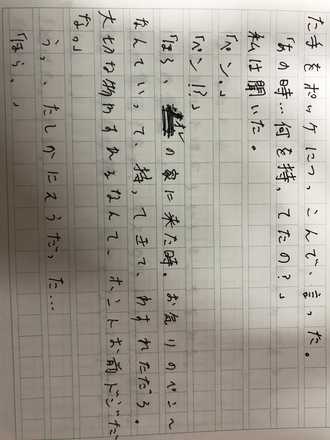 た手をポッケにつっこんで、言った。
「あの時…何を持ってたの?」
私は聞いた。
「ペン。」
「ペン!?」
「ほら、オレの家に来た時。お気りのペン〜
なんていって、持ってきて、わすれただろ。
大切な物わすれるなんて、ホントお前ドジだ
な。」
うっ、たしかにそうだった…
「ほら。」